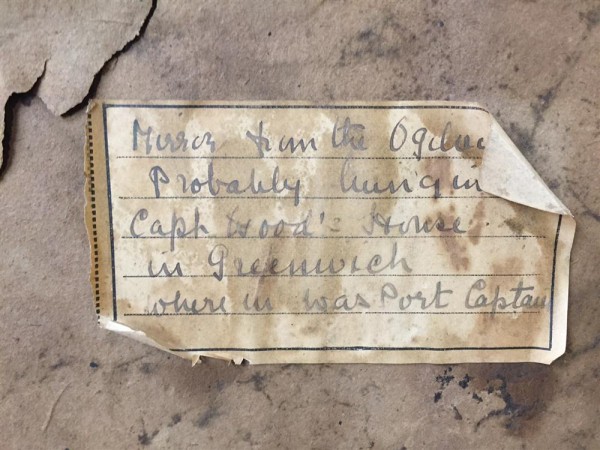 Mirror from the
Probably hung in
Capt Hood's House
in Greenwich
where in was Port Captain